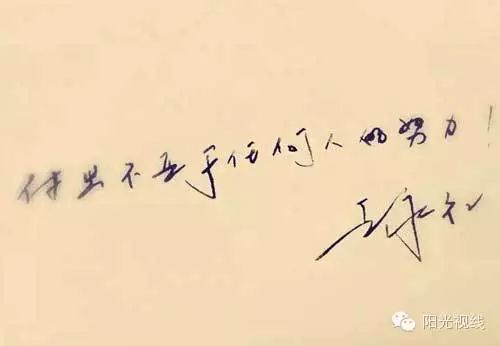 付出不亚于任何人的努力！
阳光视线